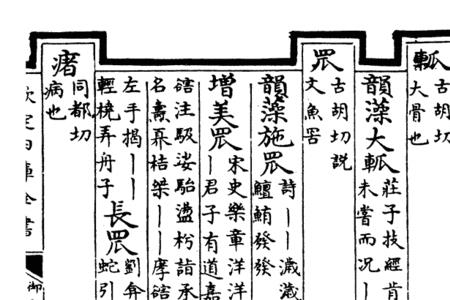 軱古胡切
大骨也
韻藻大軱莊子技經肯
未嘗而況丨
罛古胡切說
文魚罟
韻藻施罛詩丨丨濊濊
鱣鮪發發
增美罛宋史樂章洋洋
丨君子有道嘉
注馺娑駘盪枍詣承
名壽桔桀丨摩
左手揭丨丨長罛劉弇
輕橈弄舟子蛇引
瘏同都切
病也
欽定四庫全書
御